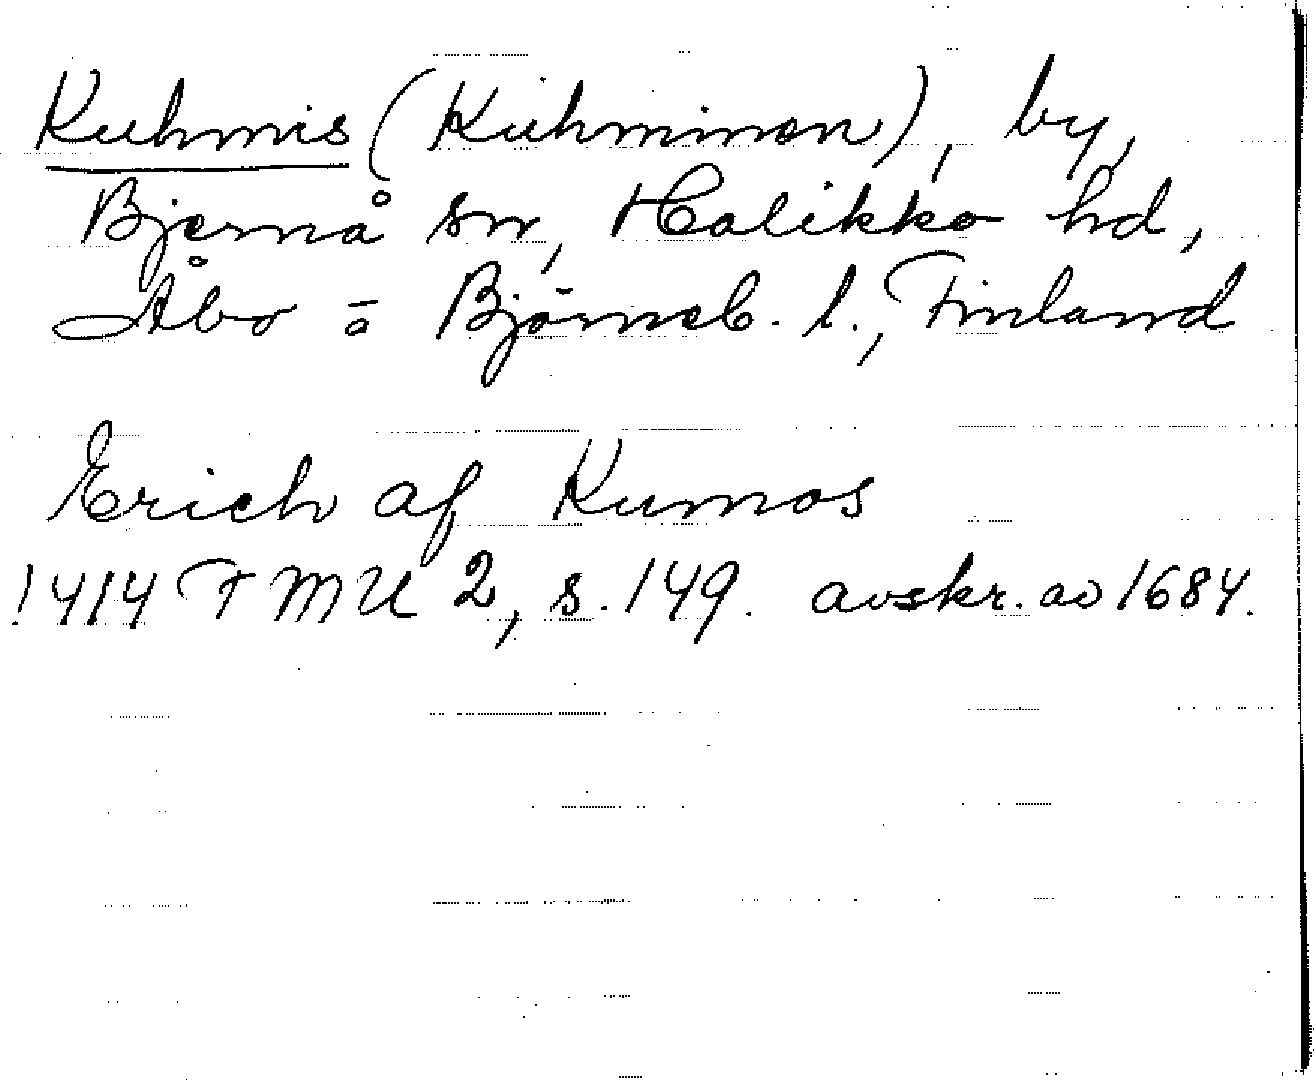 Kuhmis (Kuhminen), by,
Bjernå sn, Halikko hd,
Åbo o Björneb. l., Finland
Erich af Kumos
1414 FMU 2, s. 149. avskr. av 1684.